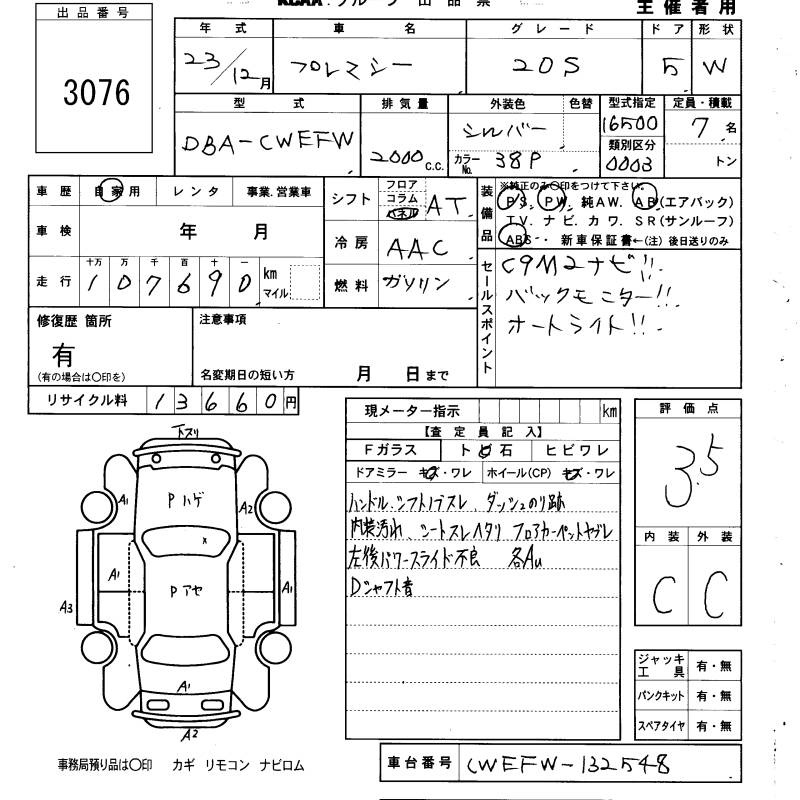 KCAA.グループ 出品票
主催者用
出品番号
3076
年式 車名 グレード ドア 形状
23/12月 プレマシー 20S 5 W
型式 排気量 外装色 色替 型式指定 定員・積載
DBA-CWEFW 2000c.c. シルバー 16500 7名
類別区分
カラーNo. 38P 0003 トン
車歴 自家用 レンタ 事業.営業車
車検 年 月
走行 十万 万 千 百 十 一
107690 km
マイル
シフト フロア コラム パネル AT
冷房 AAC
燃料 ガソリン
装備品
※純正のみ〇印をつけて下さい.
PS. PW. 純AW. AB(エアバック)
TV. ナビ. カワ. SR(サンルーフ)
ABS・. 新車保証書←(注) 後日送りのみ
セールスポイント
C9M2ナビ!!.
バックモニター!!.
オートライト!!.
修復歴 箇所
有
(有の場合は〇印を)
注意事項
名変期日の短い方 月 日まで
リサイクル料 13660円
現メーター指示 km
【査定員記入】
Fガラス ト ビ 石 ヒビワレ
ドアミラー キズ・ワレ ホイール(CP) キズ・ワレ
ハンドル、シフトノブスレ、ダッシュのり跡
内装汚れ、シートスレヘタリ フロアカーペットヤブレ
左後パワースライド不良 各Au
Dシャフト音
評価点
3.5
内装 外装
C C
ジャッキ工具 有・無
パンクキット 有・無
スペアタイヤ 有・無
下スリ
Pハゲ
A1 A2
x
A1 Pアセ A1
A3
A1
A2
事務局預り品は〇印 カギ リモコン ナビロム
車台番号 CWEFW-132548